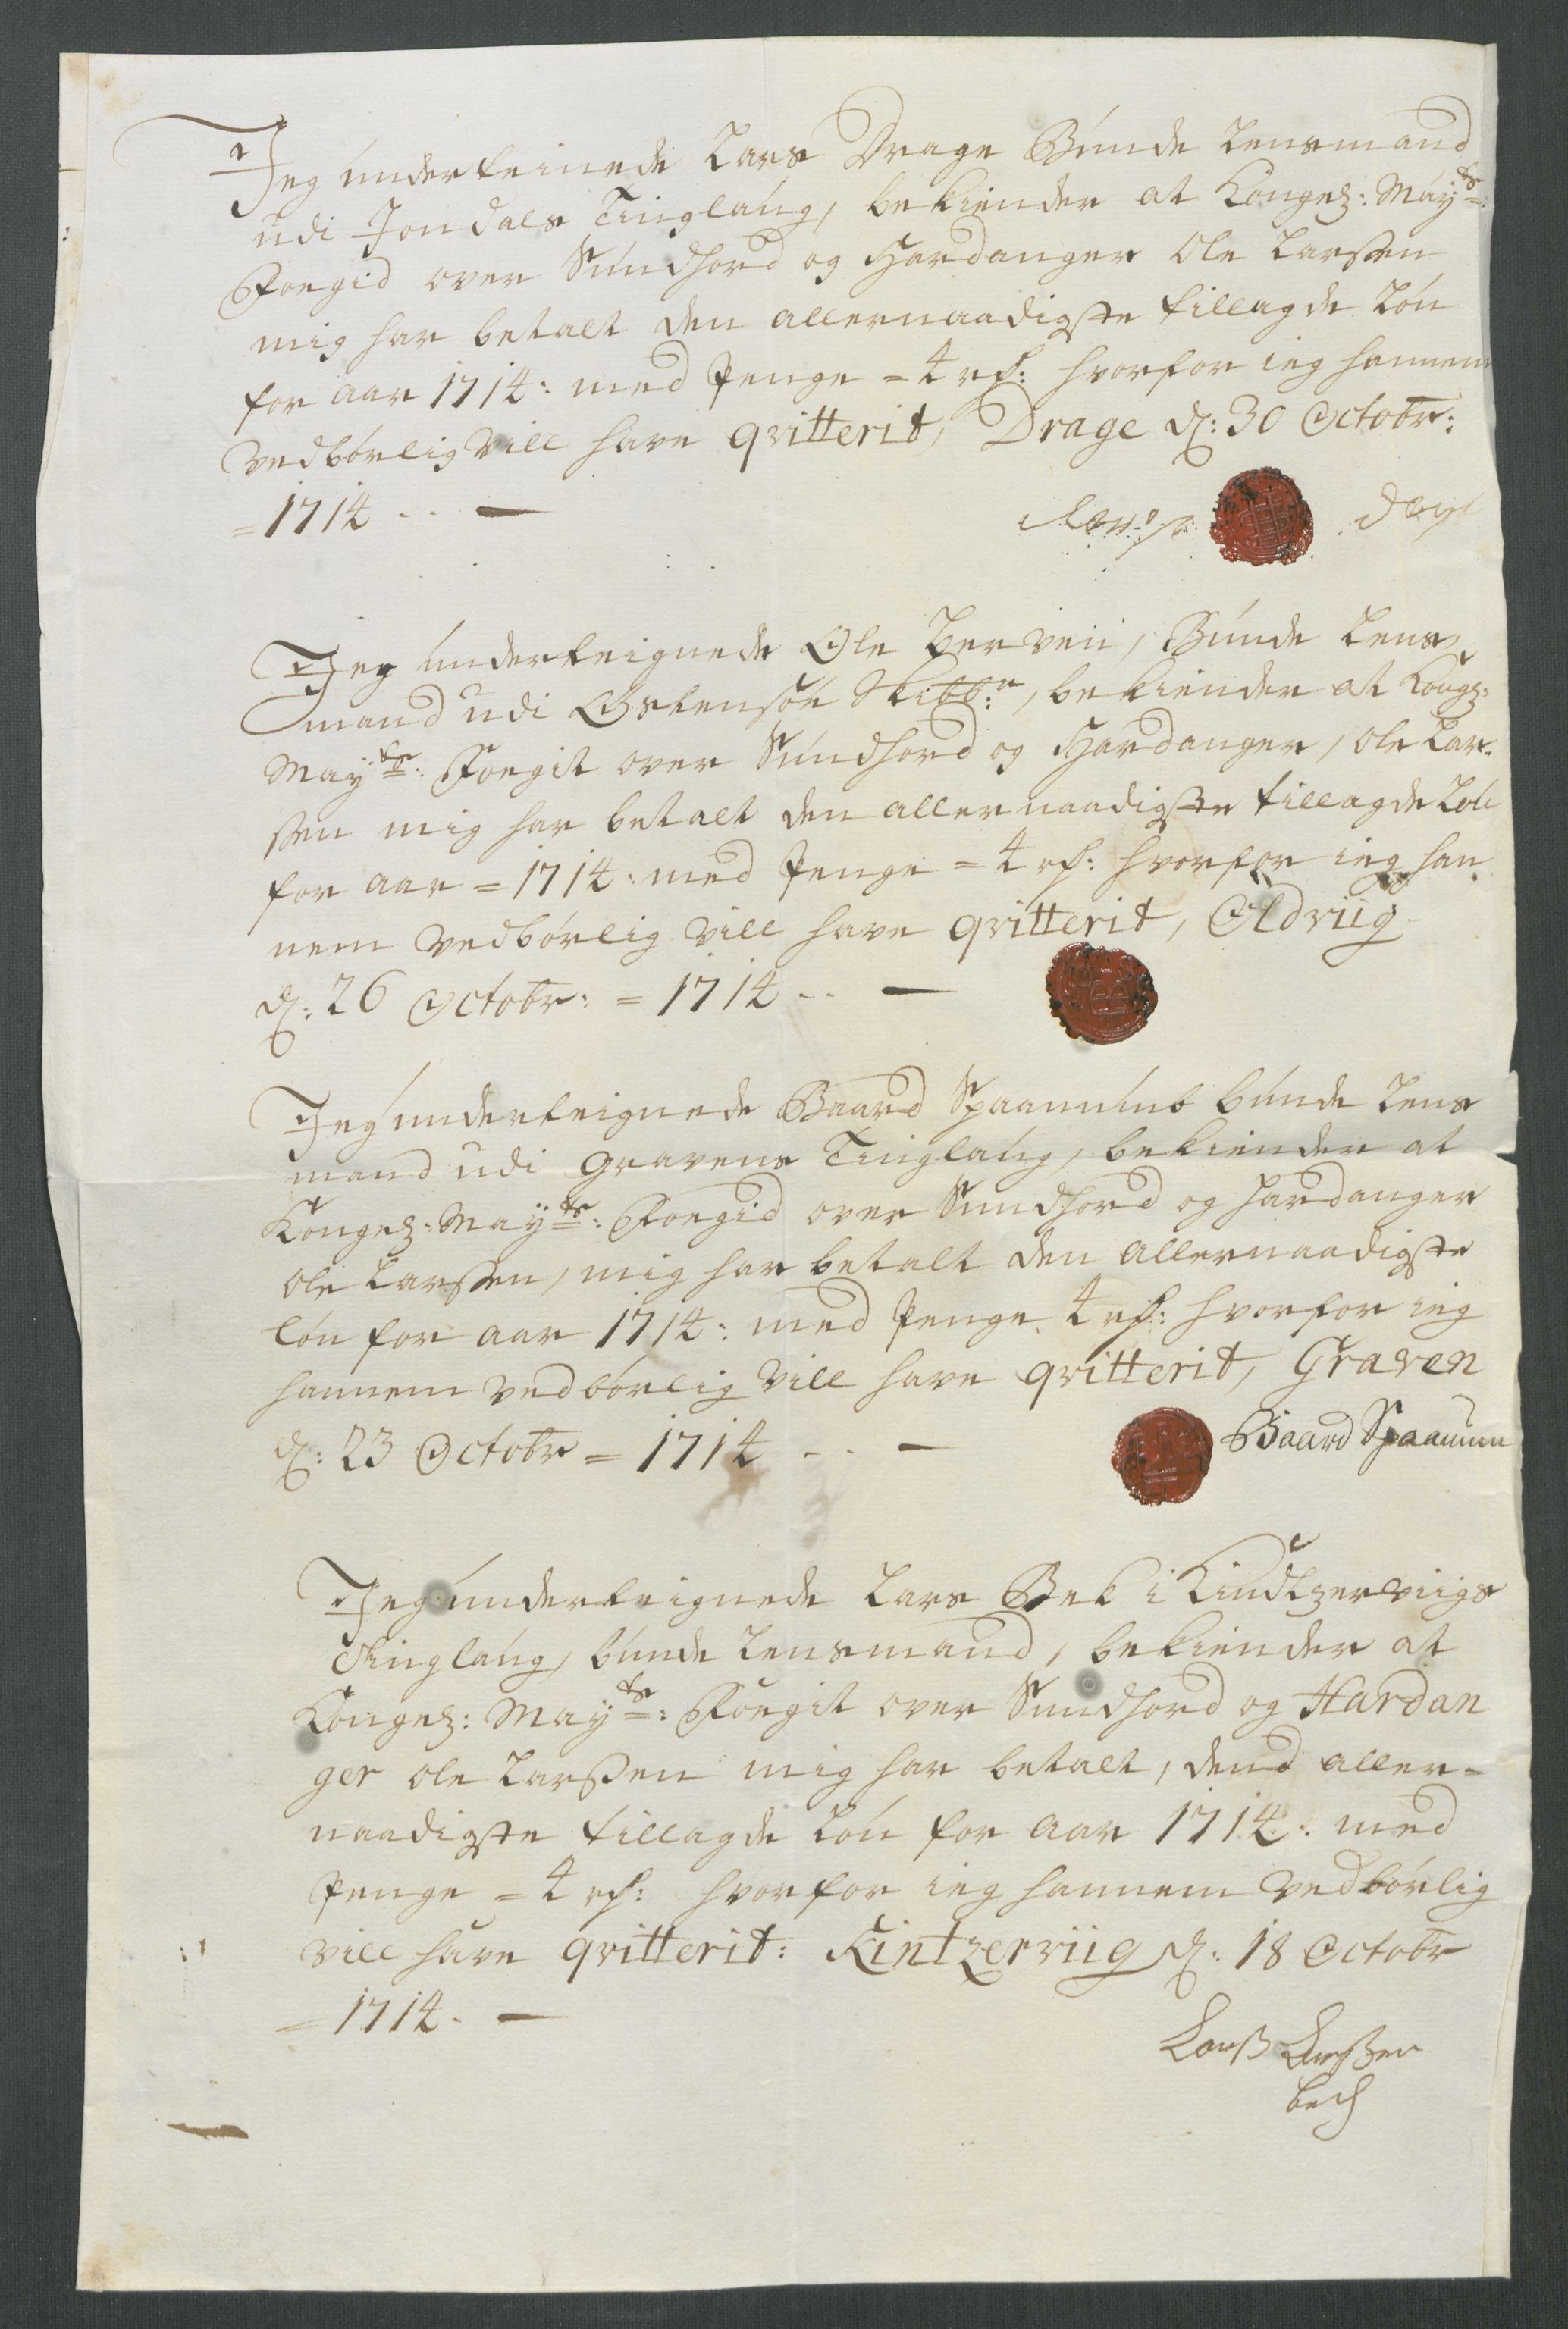 Jeg underteinede Lars Drage Bunde Lensmand
udi Jondals Tinglaug, bekiender at Kongez: Mayts:
Foegid over Sundhord og Hardanger Ole Larssen
mig har betalt den allernaadigste tillagde Lön
for aar 1714: med Penge = 4 rd: hvorfor ieg hannem
vedbörlig vill have qvitterit, Drage d: 30 Octobr:
= 1714 - - —
Jeg underteignede Ole Berven, Bunde Lens,
mand udi Östensöe Skibbr:, bekiender at Kongz:
Mayts: Foegit over Sundhord og Hardanger, Ole Lar-
ssen mig har betalt den allernaadigste tillagde Lön
for aar = 1714: med Penge = 4 rd: hvorfor ieg han
nem vedbörlig vill have qvitterit, Öldviig
d: 26 Octobr: = 1714 - - —
Jeg underteignede Baard Spaanumb bunde Lens
mand udi Gravens Tinglaug, bekiender at
Kongez: Mayts: Foegid over Sundhord og Hardanger
Ole Larssen, mig har betalt den Allernaadigste
lön for aar 1714: med Penge 4 rd: hvorfor ieg
hannem vedbörlig vill have qvitterit, Graven
d: 23 Octobr = 1714 - - —
Baard Spaanum
Jeg underteignede Lars Bek i Kindtzerviigs
Tinglaug, bunde Lensmand, bekiender at
Kongez: Mayts: Foegit over Sundhord og Hardan
ger Ole Larssen mig har betalt, dend aller-
naadigste tillagde Lön for aar 1714: med
Penge = 4 rd: hvorfor ieg hannem vedbörlig
vill have qvitterit: Kintzerviig d: 18 Octobr
= 1714. —
Larss Larssen
bech